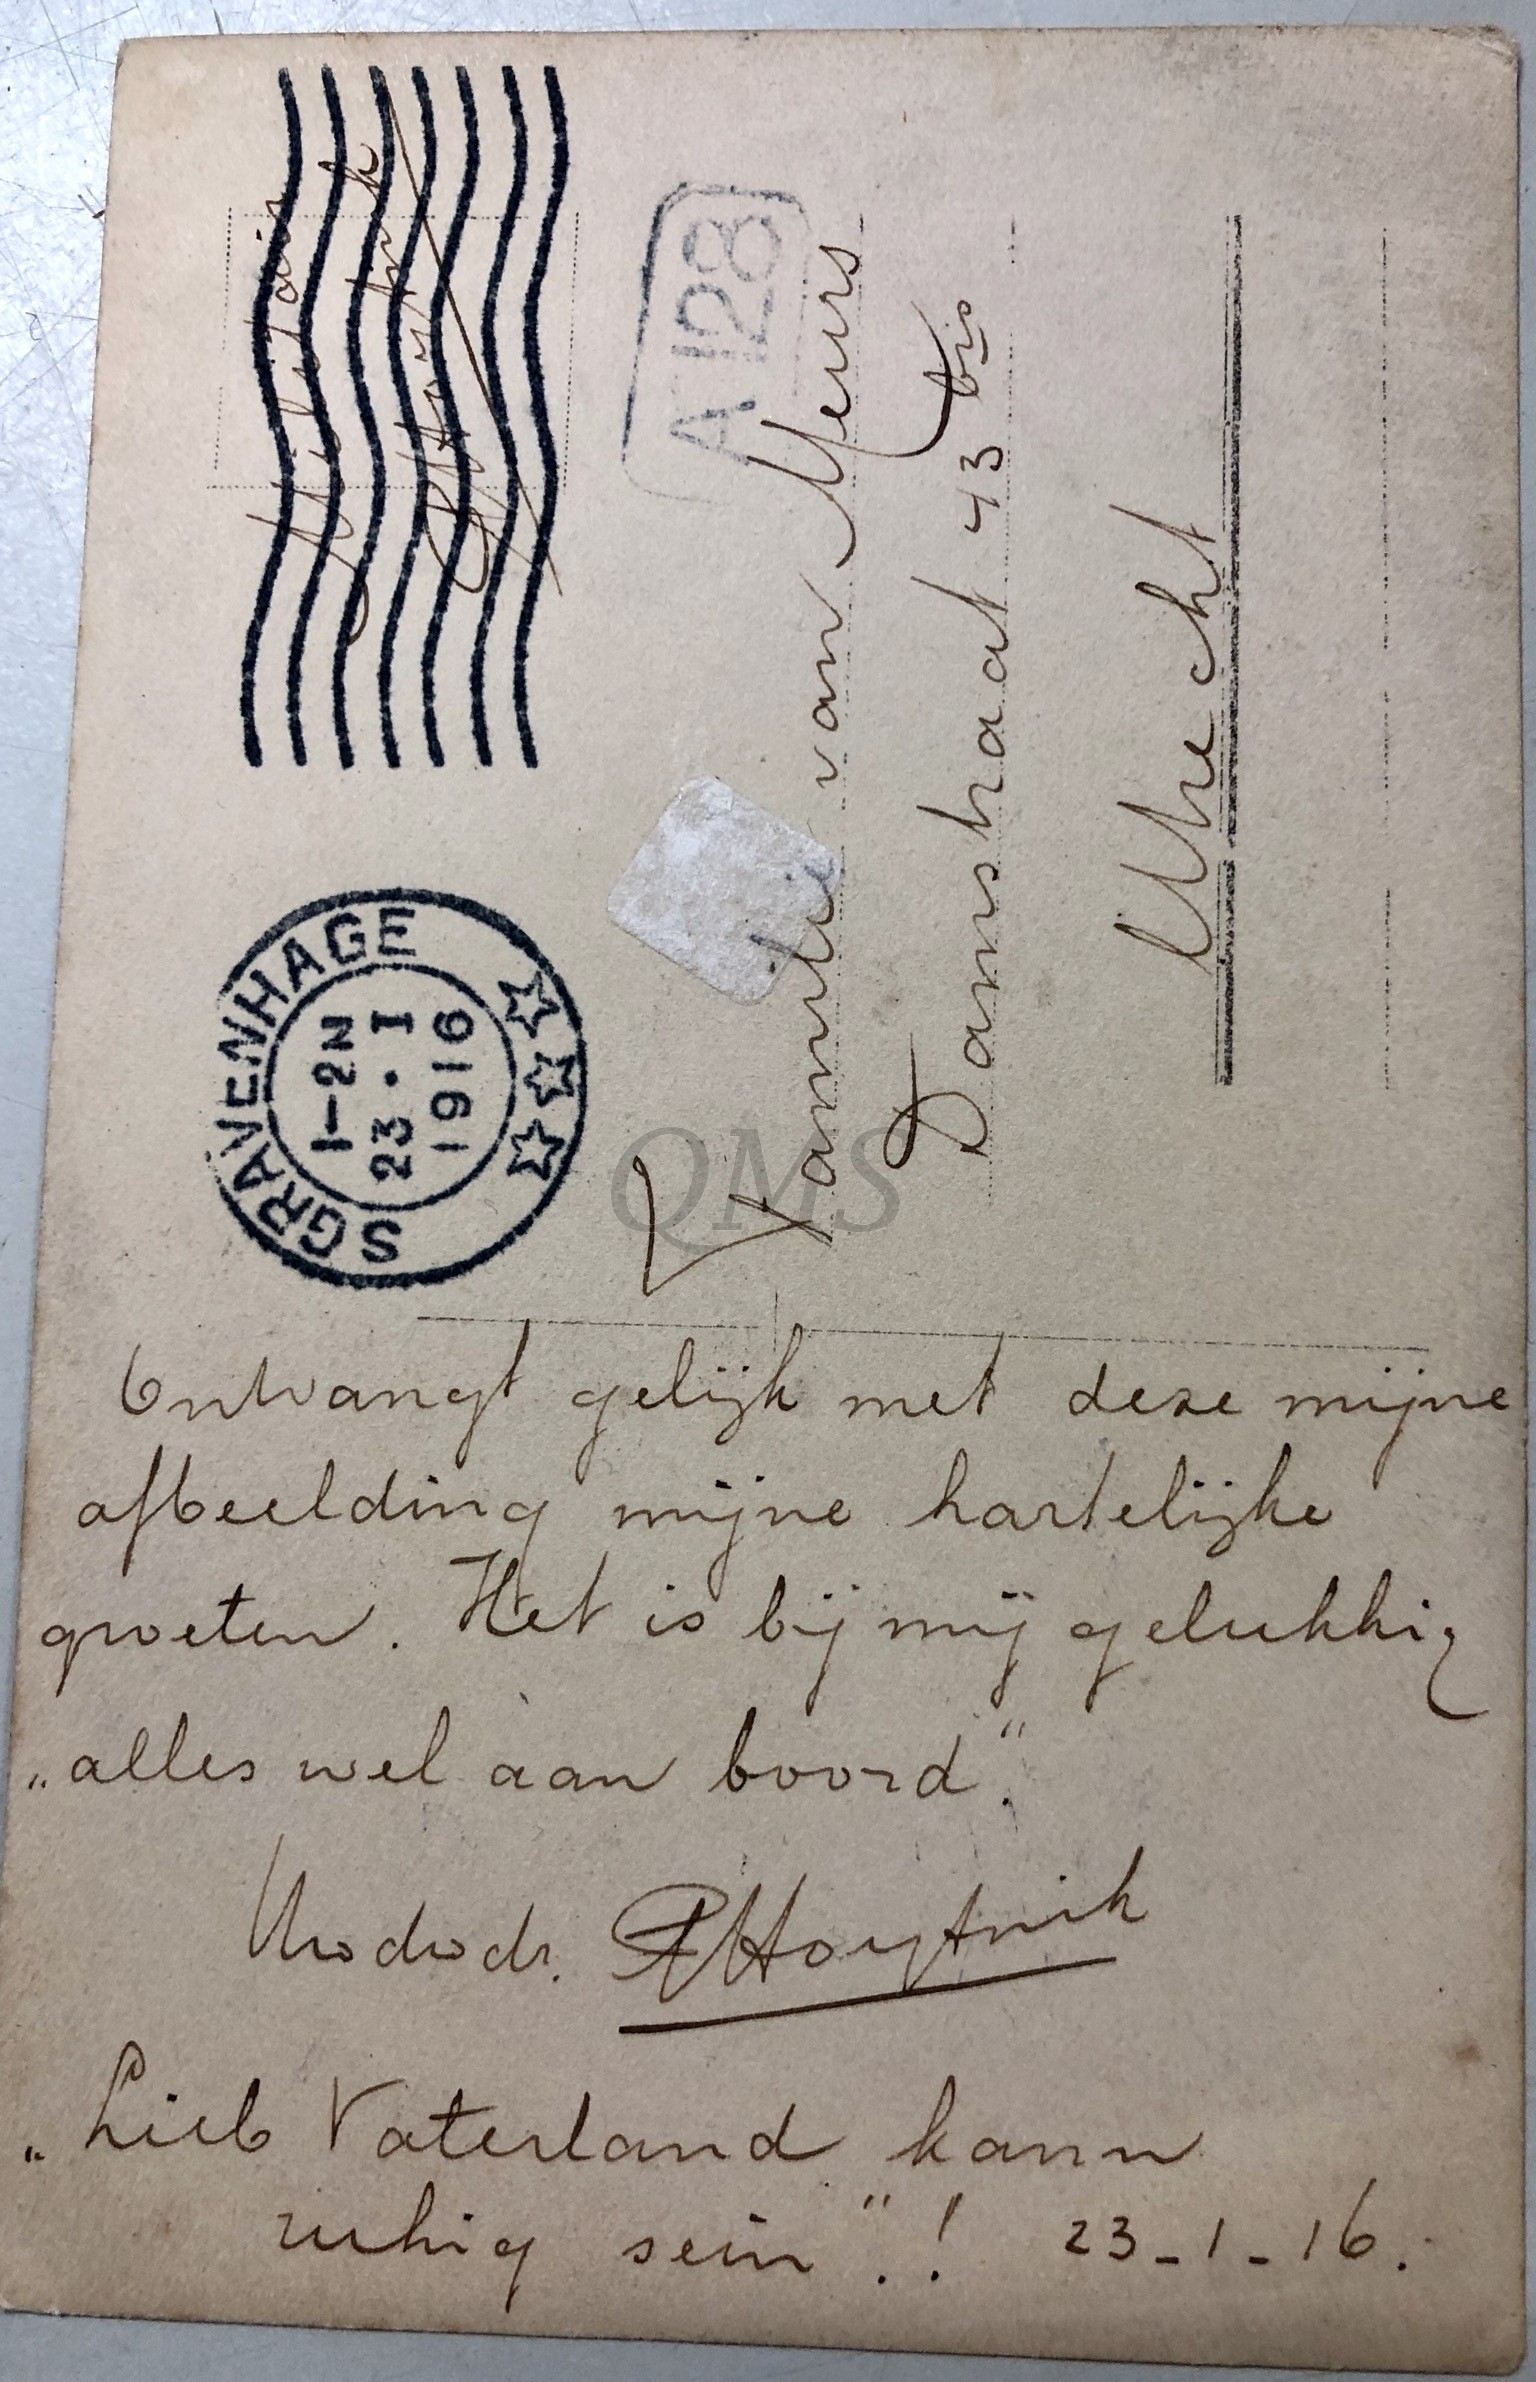 Militair
'SGRAVENHAGE
1-2N
23.I
1916
A128
Familie van Meurs
Damstraat 43 bis
Utrecht
QMS
Ontvangt gelijk met deze mijne
afbeelding mijne hartelijke
groeten. Het is bij mij gelukkig
„alles wel aan boord".
Uwdwdr.
„Lieb Vaterland kann
ruhig sein".! 23-1-16.